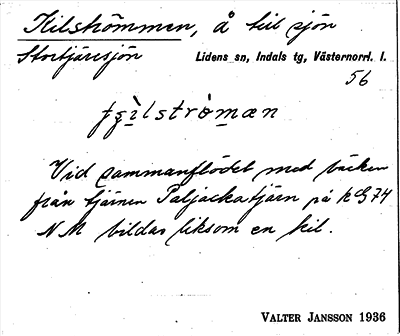 Kilströmmen, å till sjön
Stortjäresjön Lidens sn, Indals tg, Västernorrl. l.
56
Vid sammanflödet med bäcken
från tjärnen Paljackatjärn på
NM bildas liksom en kil.
VALTER JANSSON 1936